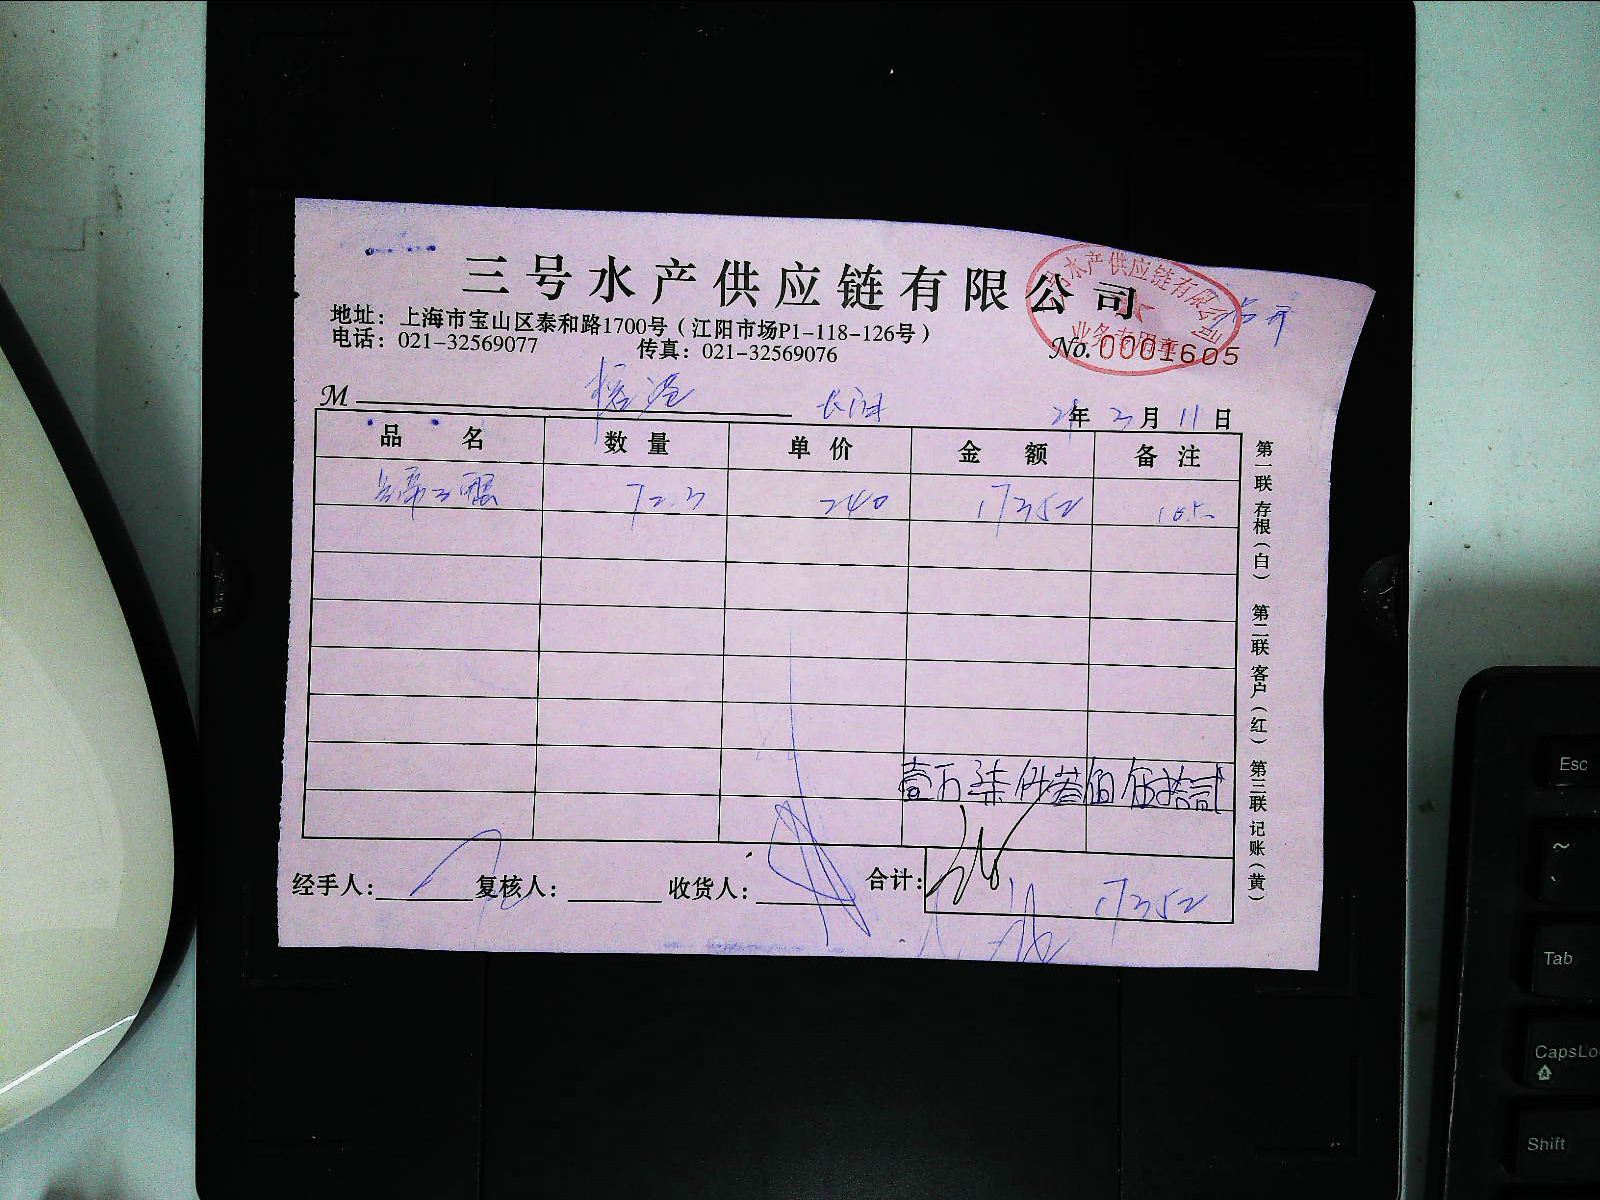 三号水产供应链有限公司
地址：上海市宝山区泰和路1700号（江阳市场P1-118-126号）
电话：021-32569077 传真：021-32569076
水产供应链有限公司
业务专用章
No. 0001605
M
21年3月11日
品名 数量 单价 金额 备注
72.3 240 17352
壹万柒仟叁佰伍拾贰
经手人： 复核人： 收货人： 合计： 17352
第一联 存根（白） 第二联 客户（红） 第三联 记账（黄）
Esc
~
Tab
CapsLo
Shift